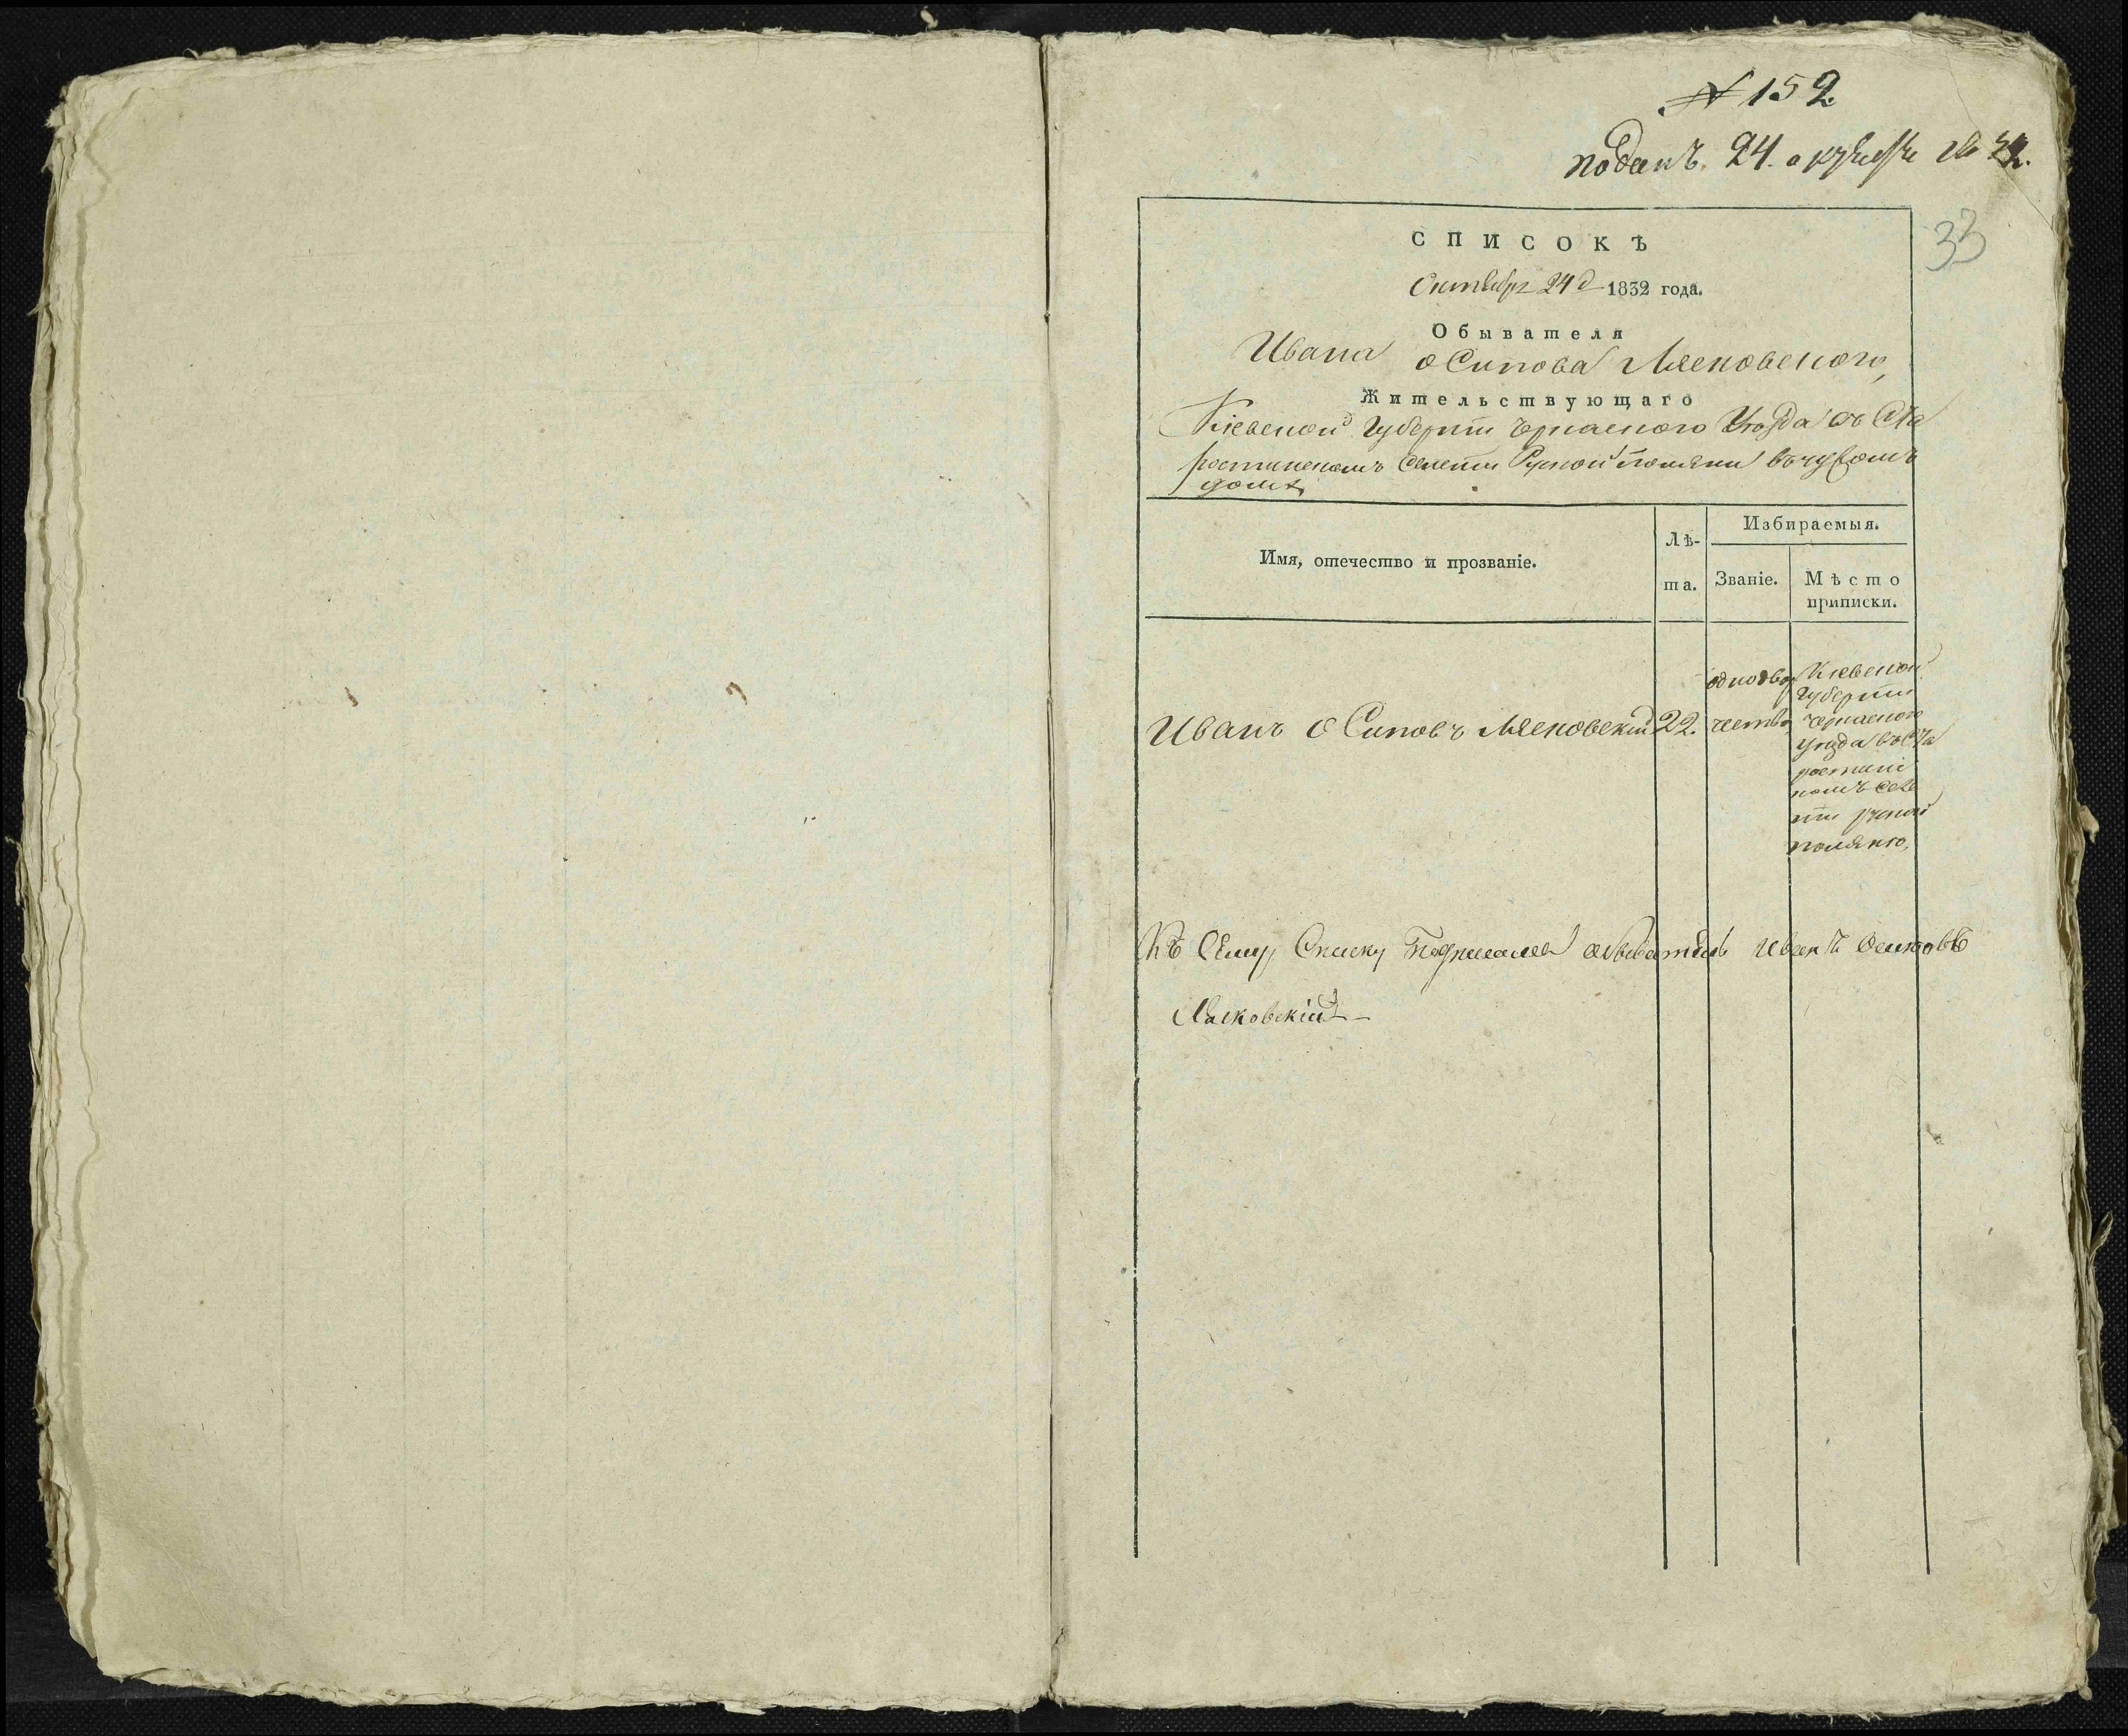 № 152
поданъ. 24. октября 1832.
33
СПИСОКЪ
Октебря 24 д 1832 года.
Обывателя
Ивана осипова Лясковского,
Жительствующаго
Кіевской Губернии черкаского Уезда въ Ста
ростинскомъ селении Руской поляни въ чужомъ
доме
Имя, отечество и прозваніе.
Лѣта.
Избираемыя.
Званіе.
Мѣсто приписки.
Иванъ осиповъ Лясковский
22.
однодворчество
Киевской
Губернии
черкаского
уезда въ Ста
ростинс
комъ селе
нии руской
поляню,
Къ Сему Списку Подписался обыватель Иванъ осиповъ
Лясковскій